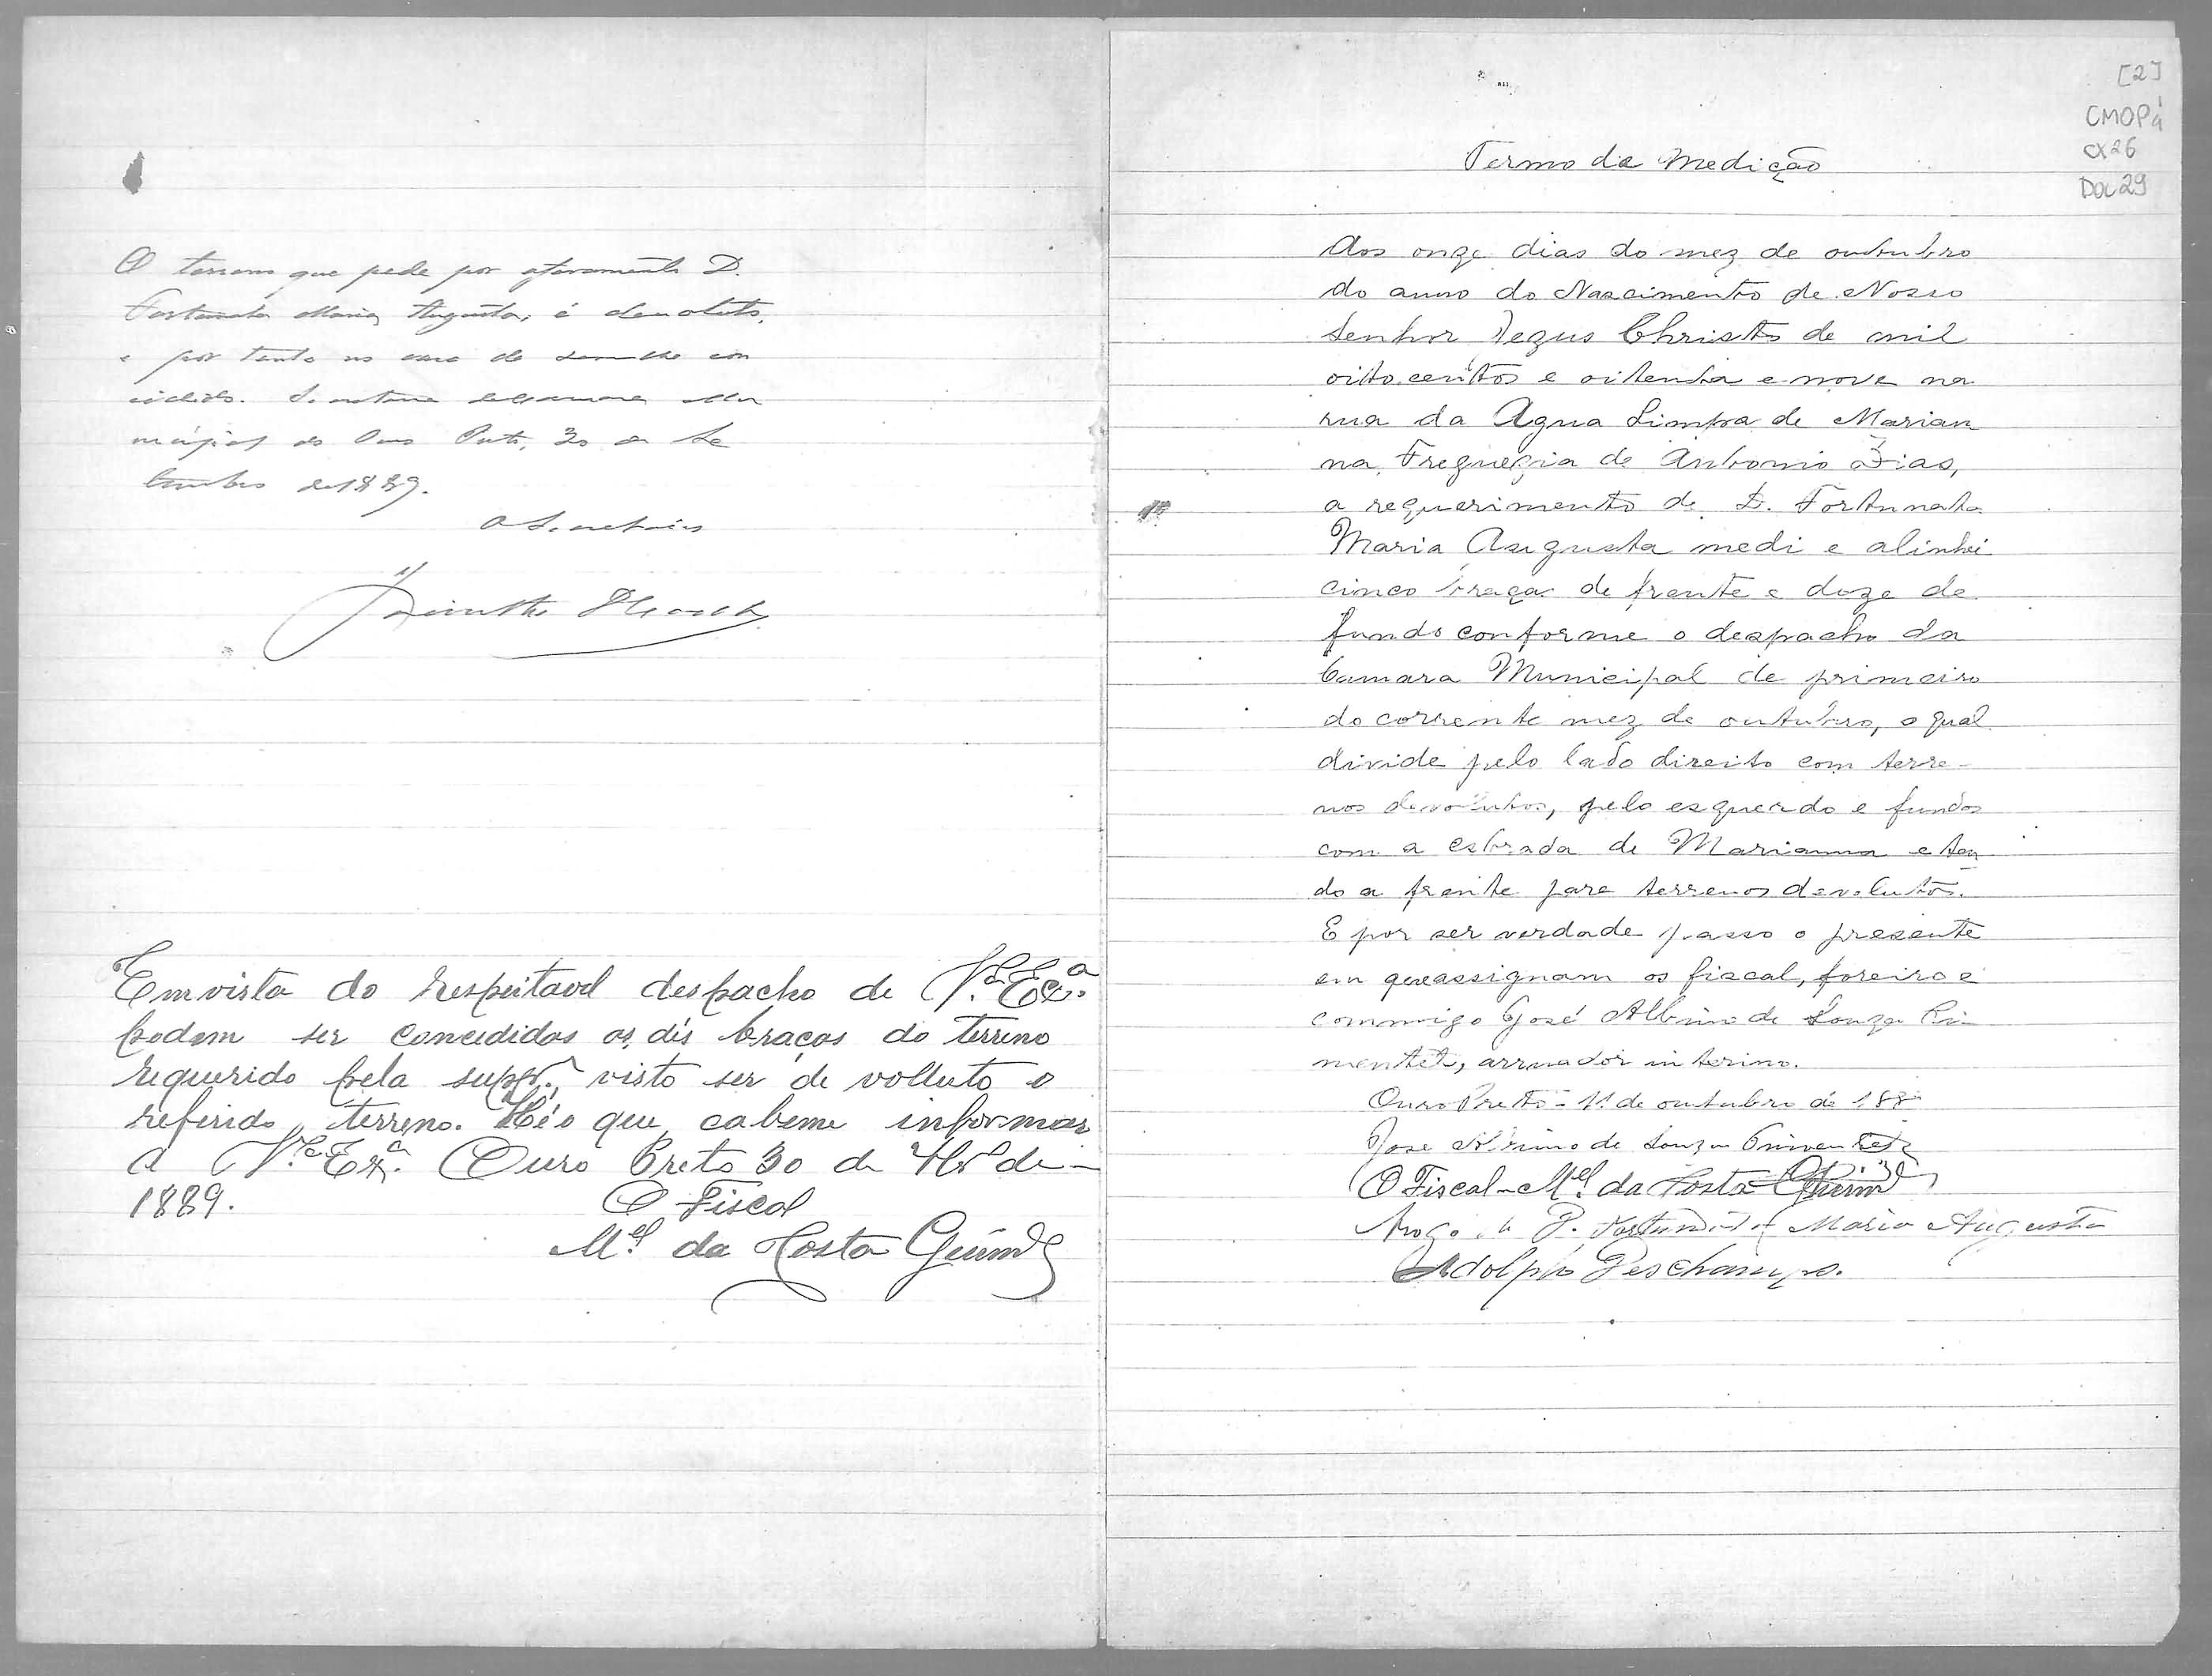 O terreno que pede por aforamento D.
Fortunata Maria Augusta, é devoluto,
e por tanto no caso de ser con
cedido. Secretaria da Camara Mu
nicipal do Ouro Preto, 30 de Se
tembro de 1889.
O Secretario
Em vista do respeitavel despacho de V.ª Ex.ª
podem ser concedidas as dés braças do terreno
requerido pela supp.e, visto ser de volluto o
referido terreno. Hé o que cabeme informar
a V.ª Ex.ª Ouro Preto 30 de 7br.º de
1889.
O Fiscal
M.el da Costa Guim.es
[2]
CMOP
cx 26
Doc 29
Termo de Medição
Aos onze dias do mez de outubro
do anno do Nascimento de Nosso
Senhor Jezus Christo de mil
oitocentos e oitenta e nove na
rua da Agua Limpa de Marian
na, Freguezia de Antonio Dias,
a requerimento de D. Fortunata
Maria Augusta medi e alinhei
cinco braças de frente e doze de
fundo conforme o despacho da
Camara Municipal de primeiro
do corrente mez de outubro, o qual
divide pelo lado direito com terre-
nos devolutos, pelo esquerdo e fundos
com a estrada de Marianna e ten
do a frente para terrenos devolutos.
E por ser verdade passo o presente
em que assignam os fiscal, foreiro e
commigo José Albino de Souza Pi-
mentel, arruador interino.
Ouro Preto - 11 de outubro de 188
José Albino de Souza Pimentel
O Fiscal - M.el da Costa Guim.es
Arogo de D. Fortunata Maria Augusta
Adolpho Deschamps.